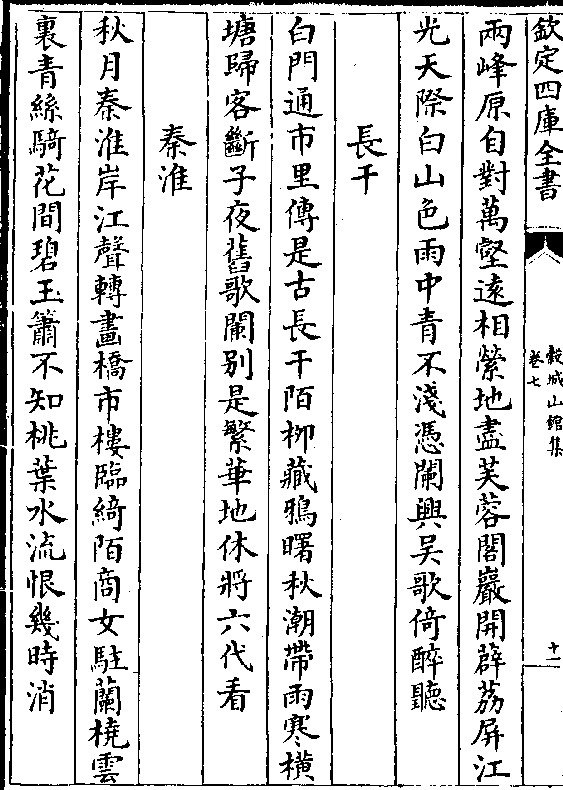 欽定四庫全書
穀城山館集
卷七
十一
兩峰原自對萬壑遠相縈地盡芙蓉閣巖開薜荔屏江
光天際白山色雨中青不淺憑闌興吴歌倚醉聽
長干
白門通市里傳是古長干陌柳藏鴉曙秋潮帶雨寒橫
塘歸客斷子夜舊歌闌别是繁華地休將六代看
秦淮
秋月秦淮岸江聲轉畫橋市樓臨綺陌商女駐蘭橈雲
裏青絲騎花間碧玉簫不知桃葉水流恨幾時消